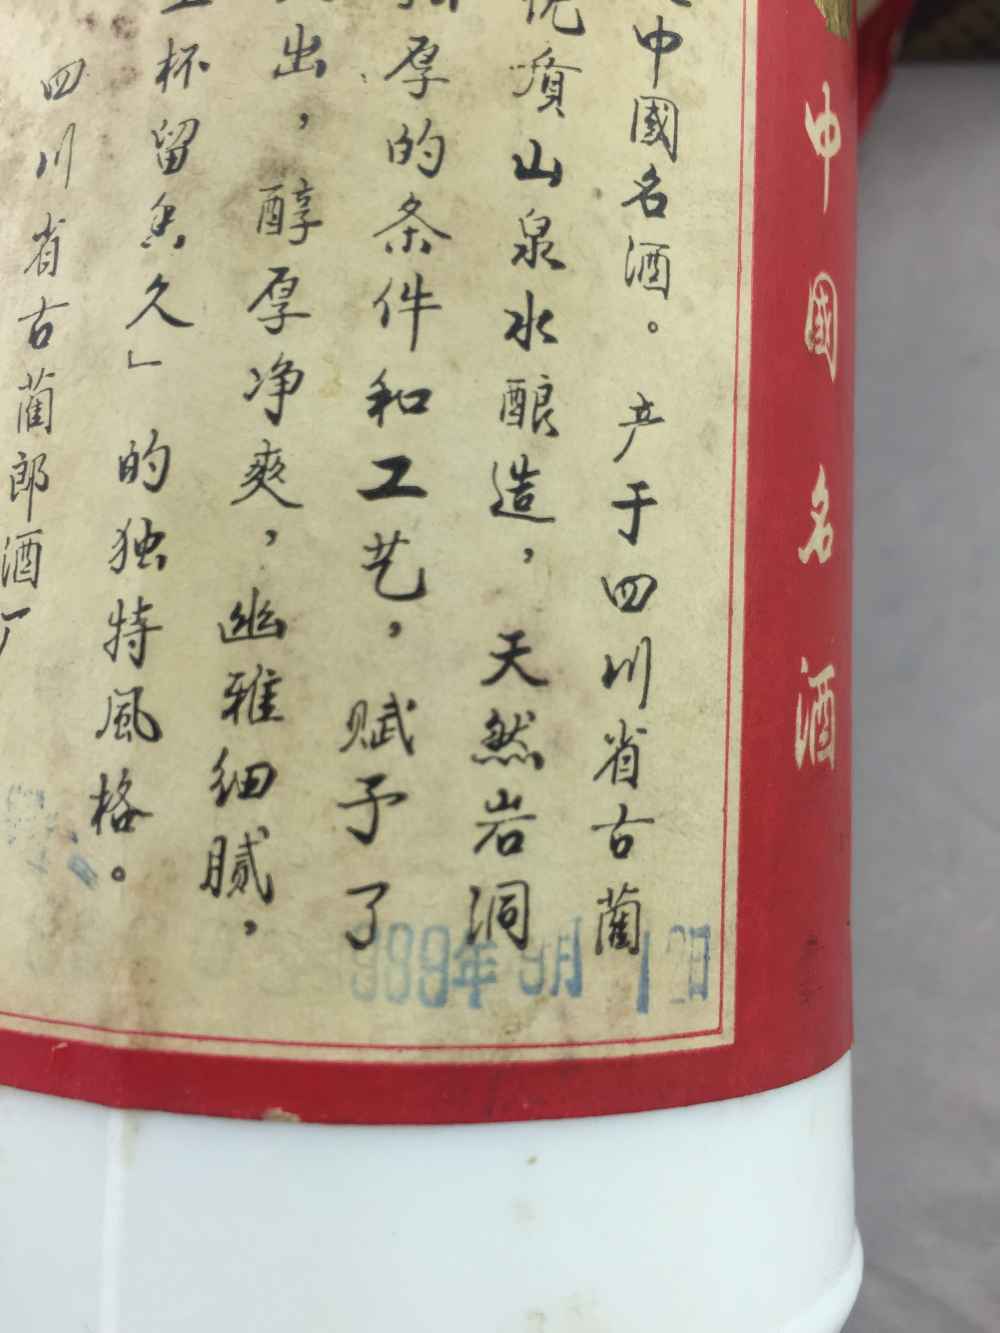 中國名酒
中國名酒。产于四川省古蔺
优質山泉水酿造，天然岩洞
厚的条件和工艺，赋予了
出，醇厚净爽，幽雅细腻，
杯留香久」的独特風格。
四川省古蔺郎酒厂
1989年9月1日